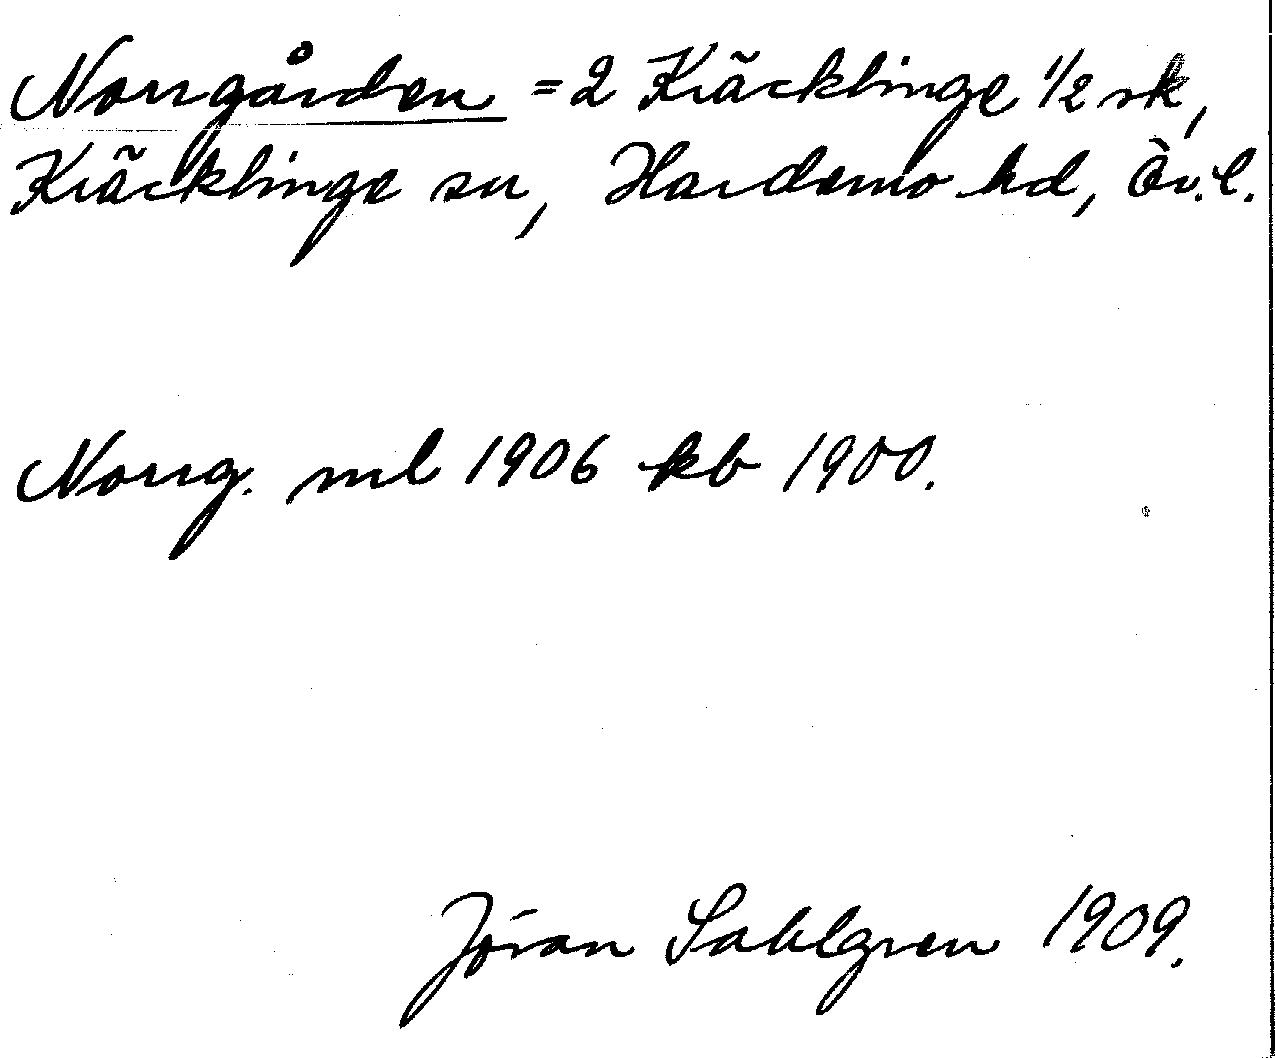 Norrgården = 2 Kräcklinge 1/2 sk,
Kräcklinge sn, Hardemo hd, Ör. l.
Norrg. ml 1906 kb 1900.
Jöran Sahlgren 1909.